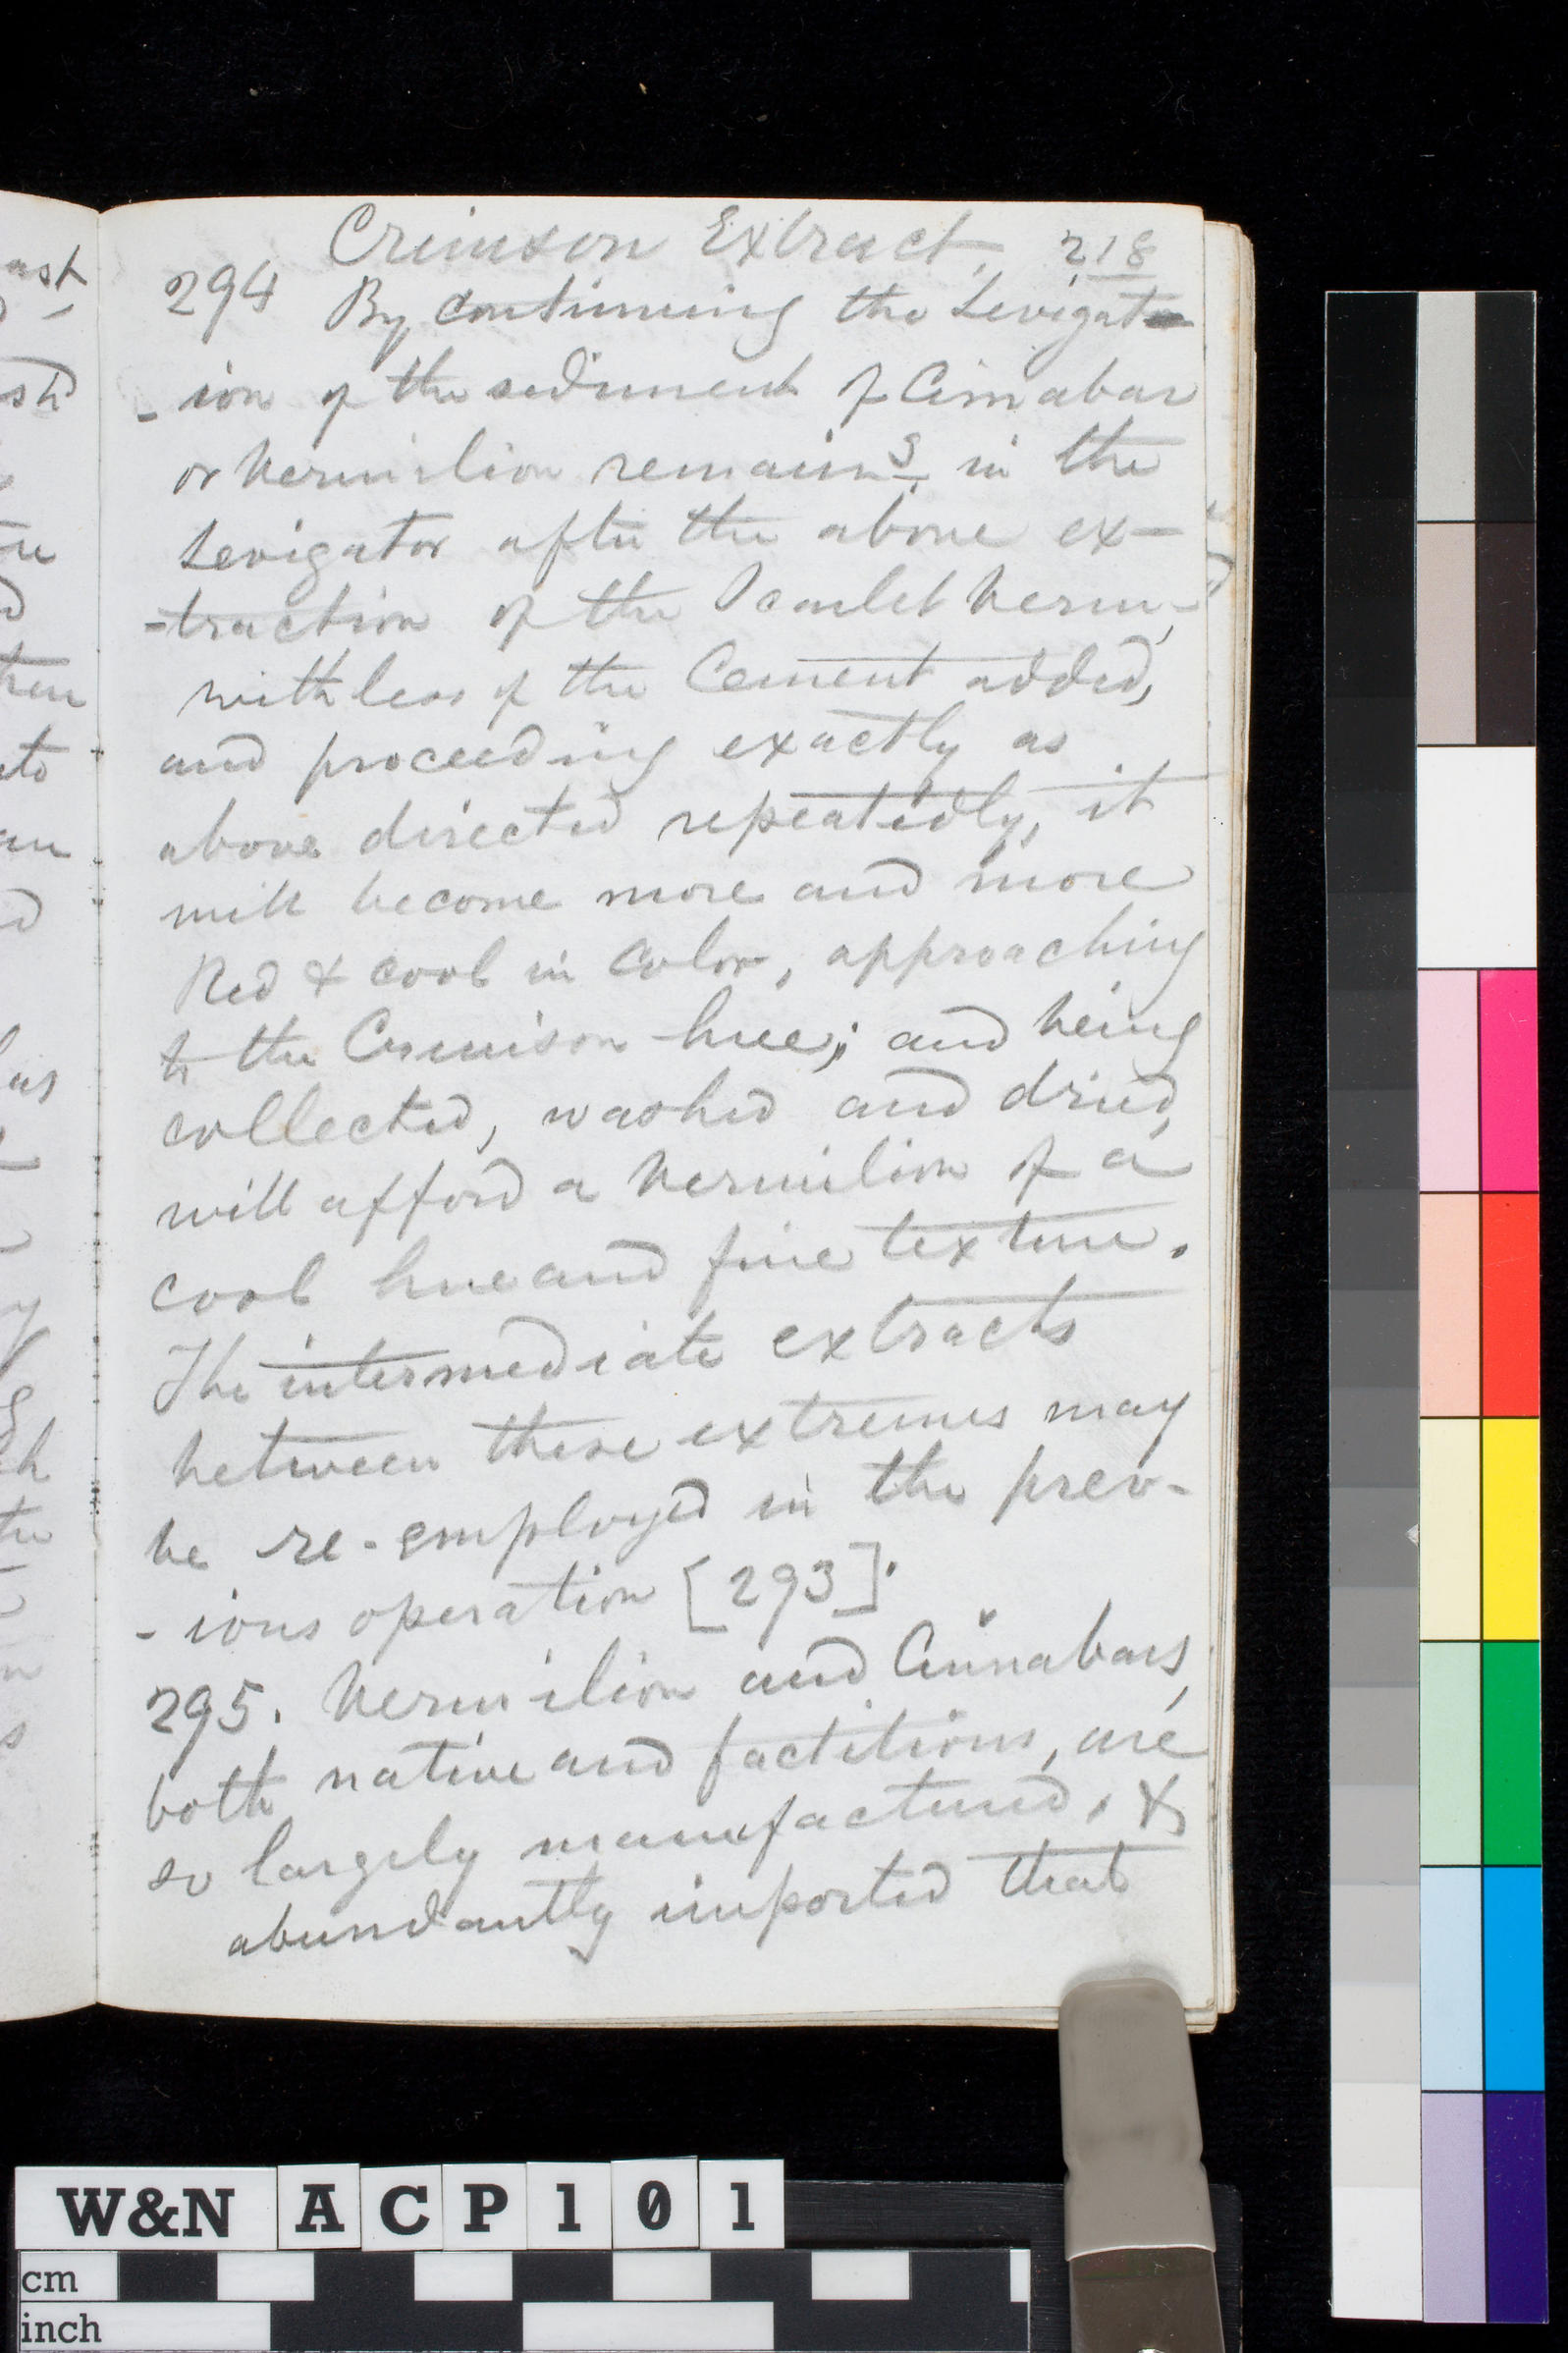 Crimson Extract. 218
294 By continuing the Levigat-
- ion of the sediment of Cinnabar
or Vermilion remains in the
Levigator after the above ex-
-traction of the Scarlet Verm,
with less of the Cement added,
and proceeding exactly as
above directed repeatedly, it
will become more and more
Red & cool in Color, approaching
to the Crimson hue; and being
collected, washed and dried,
will afford a Vermilion of a
cool hue and fine texture.
The intermediate extracts
between these extremes may
be re-employed in the prev-
- ious operation [293].
295. Vermilion and Cinnabars,
both native and factitious, are
so largely manufactured, &
abundantly imported that
W&N ACP101
cm
inch